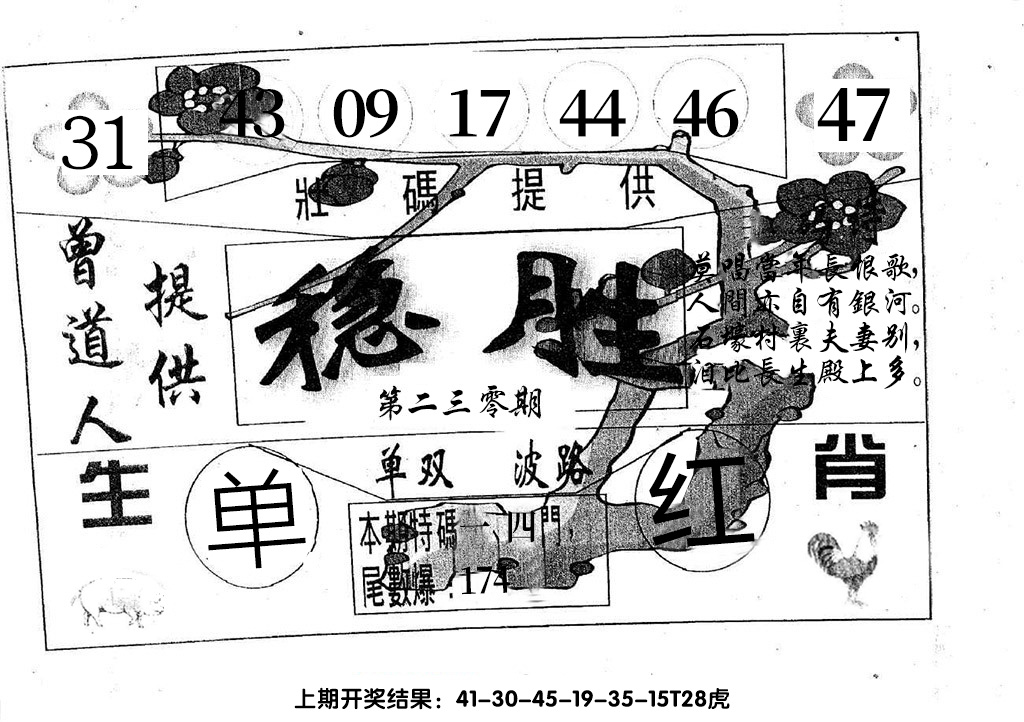 31 43 09 17 44 46 47
壯碼提供
曾道人
提供
穩勝
第二三零期
莫唱當年長恨歌，
人間亦自有銀河。
石壕村裏夫妻別，
泪比長生殿上多。
单双 波路
生肖
单 红
本期特碼一、四門，
尾數爆：174
上期开奖结果：41-30-45-19-35-15T28虎